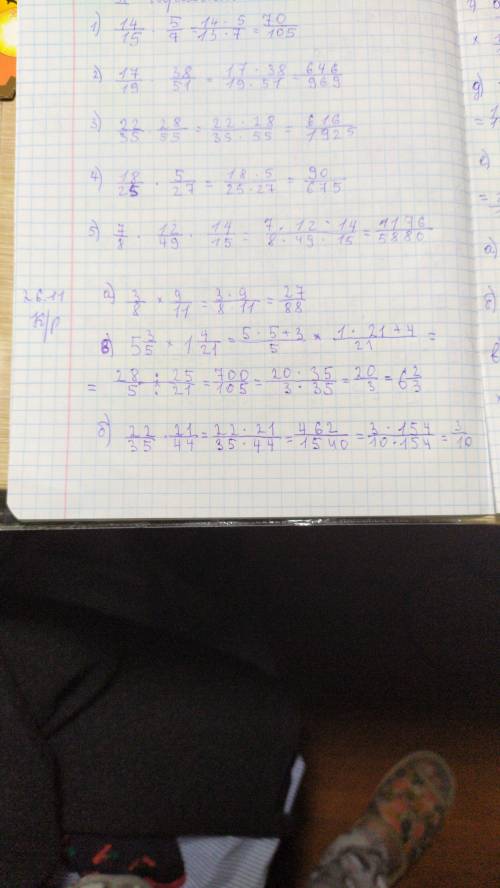 1) 14/15 · 5/7 = 14 · 5/15 · 7 = 70/105
2) 17/19 · 38/51 = 17 · 38/19 · 51 = 646/969
3) 22/35 · 28/55 = 22 · 28/35 · 55 = 616/1925
4) 18/25 · 5/27 = 18 · 5/25 · 27 = 90/675
5) 7/8 · 12/49 · 14/15 = 7 · 12 · 14/8 · 49 · 15 = 1176/5880
26.11
К/р
а) 3/8 × 9/11 = 3 · 9/8 · 11 = 27/88
в) 5 3/5 × 1 4/21 = 5 · 5 + 3/5 × 1 · 21 + 4/21 =
= 28/5 : 25/21 = 700/105 = 20 · 35/3 · 35 = 20/3 = 6 2/3
б) 22/35 · 21/44 = 22 · 21/35 · 44 = 462/1540 = 3 · 154/10 · 154 = 3/10